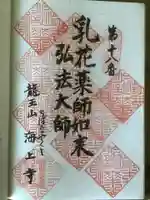 第十八番
乳花薬師如来
弘法大師
龍王山 海上寺